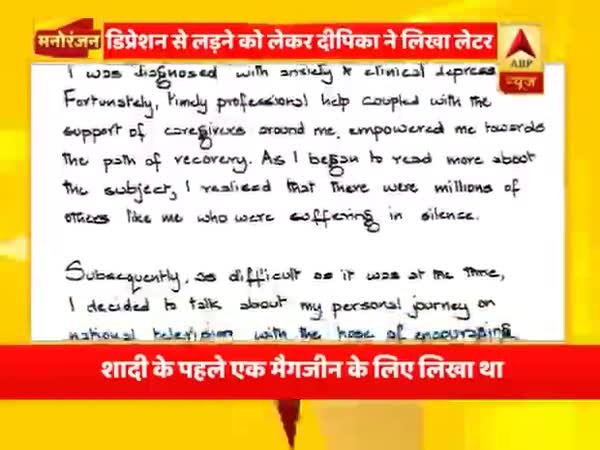 मनोरंजन डिप्रेशन से लड़ने को लेकर दीपिका ने लिखा लेटर
abp
न्यूज़
I was diagnosed with anxiety & clinical depress
Fortunately, timely professional help coupled with the
support of caregivers around me, empowered me towards
the path of recovery. As I began to read more about
the subject, I realised that there were millions of
others like me who were suffering in silence.
Subsequently, as difficult as it was at the time,
I decided to talk about my personal journey on
national television with the hope of encouraging
शादी के पहले एक मैगजीन के लिए लिखा था